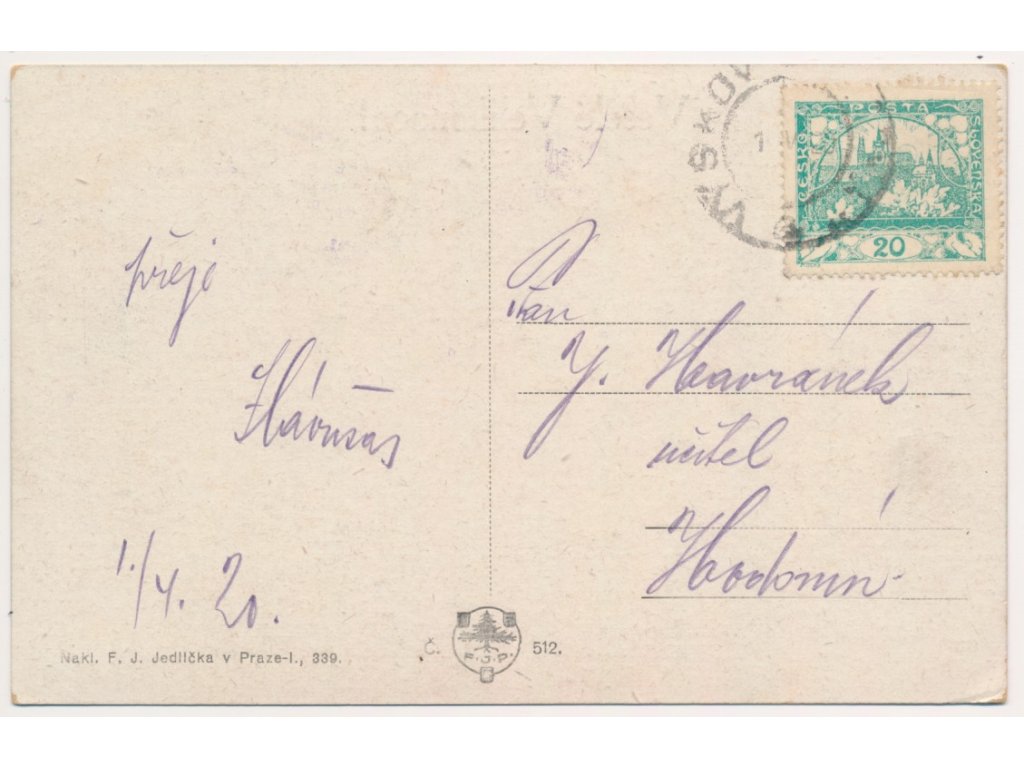 VYŠKOV
POŠTA
ČESKO
SLOVENSKÁ
20
přeje
Pan
Havránek
učitel
Hodonín
1./4. 20.
Nakl. F. J. Jedlička v Praze-I., 339.
Č. 512.
F.J.P.